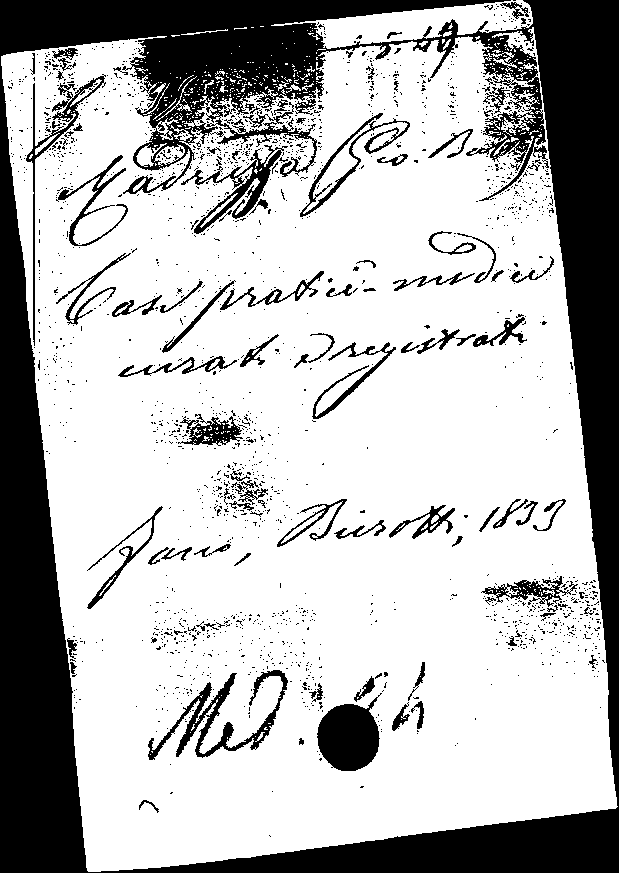 1.5.49.4
Madruzza Gio: Batt.
Casi pratici-medici
curati e registrati
Fano, Burotti, 1833
Med. 24